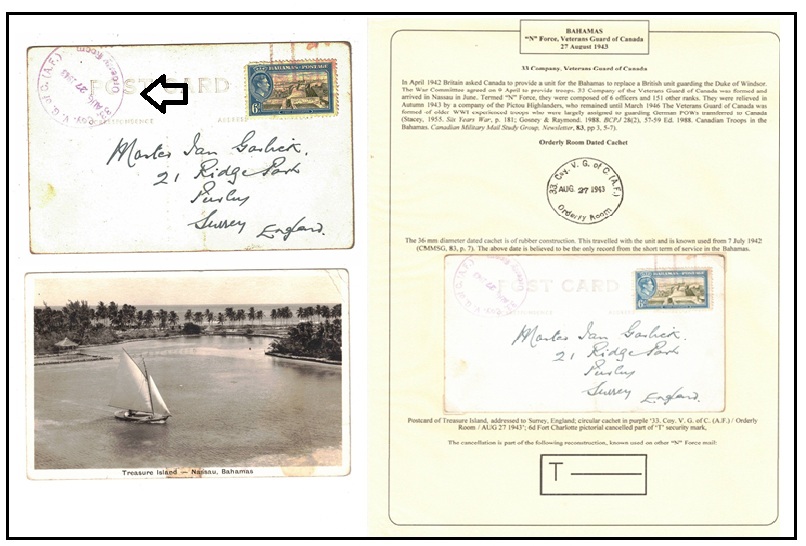 POST CARD
33 Coy. V. G. of C. (A.F.)
AUG 27 1943
Orderly Room
BAHAMAS · POSTAGE
6D
Master Ian Garlick.
21 Ridge Park
Purley
Surrey England.
Treasure Island — Nassau, Bahamas
BAHAMAS
"N" Force, Veterans Guard of Canada
27 August 1943
33 Company, Veterans Guard of Canada
In April 1942 Britain asked Canada to provide a unit for the Bahamas to replace a British unit guarding the Duke of Windsor.
The War Committee agreed on 9 April to provide troops. 33 Company of the Veterans Guard of Canada was formed and
arrived in Nassau in June. Termed "N" Force, they were composed of 6 officers and 151 other ranks. They were relieved in
Autumn 1943 by a company of the Pictou Highlanders, who remained until March 1946 The Veterans Guard of Canada was
formed of older WWI experienced troops who were largely assigned to guarding German POWs transferred to Canada
(Stacey, 1955. Six Years War, p. 181; Gosney & Raymond. 1988. BCPJ 28(2), 57-59 Ed. 1988. Canadian Troops in the
Bahamas. Canadian Military Mail Study Group, Newsletter, 83, pp 3, 5-7).
Orderly Room Dated Cachet
33. Coy. V. G. of C. (A.F.)
AUG. 27 1943
Orderly Room
The 36 mm diameter dated cachet is of rubber construction. This travelled with the unit and is known used from 7 July 1942
(CMMSG, 83, p. 7). The above date is believed to be the only record from the short term of service in the Bahamas.
POST CARD
BAHAMAS · POSTAGE
6D
Master Ian Garlick.
21 Ridge Park
Purley
Surrey England.
Postcard of Treasure Island, addressed to Surrey, England; circular cachet in purple '33. Coy. V. G. of C. (A.F.) / Orderly
Room / AUG 27 1943'; 6d Fort Charlotte pictorial cancelled part of "T" security mark.
The cancellation is part of the following reconstruction, known used on other "N" Force mail:
T